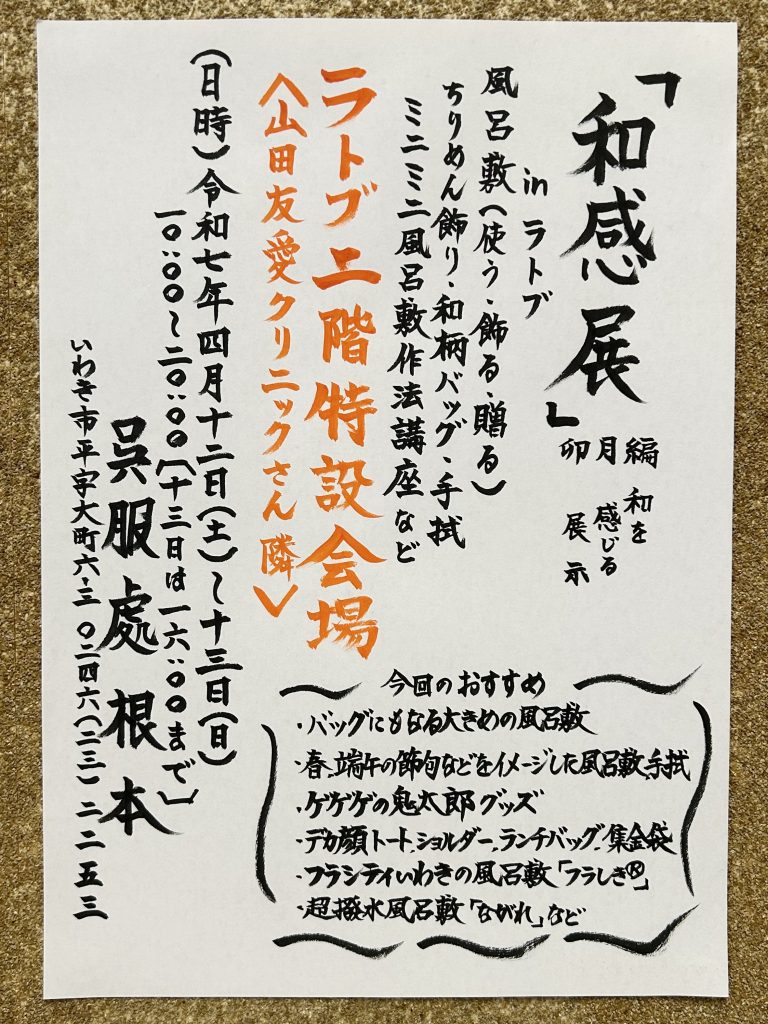 「和感展」
和を感じる展示
卯月編
in ラトブ
風呂敷(使う・飾る・贈る)
ちりめん飾り・和柄バッグ・手拭
ミニミニ風呂敷作法講座など
ラトブ二階特設会場
〈山田友愛クリニックさん隣〉
(日時)令和七年四月十二日(土)〜十三日(日)
一〇:〇〇〜二〇:〇〇〔十三日は一六:〇〇まで〕
呉服處 根本
いわき市平字大町六-三 〇二四六(二三)二二五三
今回のおすすめ
・バッグにもなる大きめの風呂敷
・春、端午の節句などをイメージした風呂敷、手拭
・ゲゲゲの鬼太郎グッズ
・デカ顔トート、ショルダー、ランチバッグ、集金袋
・フラシティいわきの風呂敷「フラしき®」
・超撥水風呂敷「ながれ」など